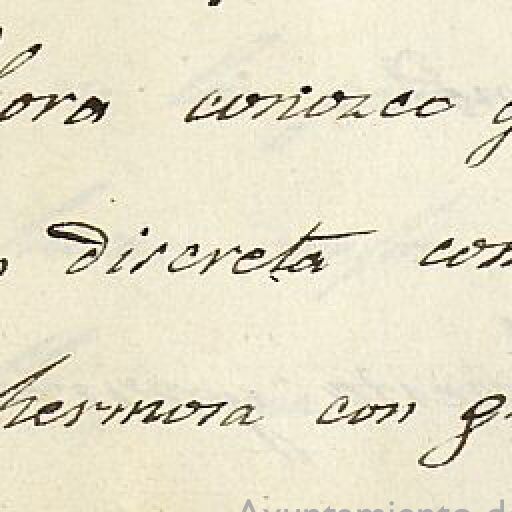 ora conozco
discreta com
hermosa con
Ayuntamiento de